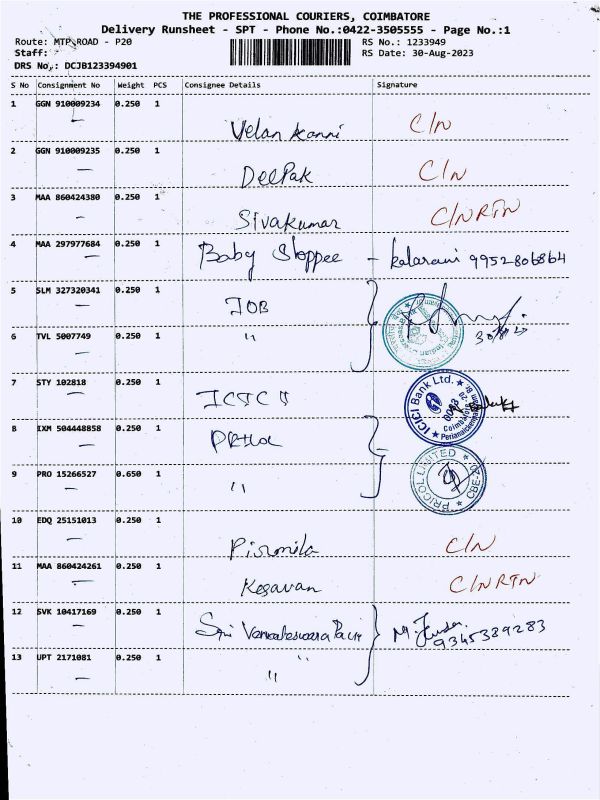 THE PROFESSIONAL COURIERS, COIMBATORE
Delivery Runsheet - SPT - Phone No.:0422-3505555 - Page No.:1
Route: MTP ROAD - P20 RS No.: 1233949
Staff: RS Date: 30-Aug-2023
DRS No.: DCJB123394901
S No Consignment No Weight PCS Consignee Details Signature
1 GGN 910009234 0.250 1
Velankanni C/N
2 GGN 910009235 0.250 1
Deepak C/N
3 MAA 860424380 0.250 1
Sivakumar C/N RTN
4 MAA 297977684 0.250 1
Baby Shoppee - kalarani 9952806864
5 SLM 327320341 0.250 1
IOB
6 TVL 5007749 0.250 1
"
7 STY 102818 0.250 1
ICICI
ICICI Bank Ltd.
Coimbatore
8 IXM 504448858 0.250 1
9 PRO 15266527 0.650 1
"
PRICOL LIMITED
10 EDQ 25151013 0.250 1
C/N
11 MAA 860424261 0.250 1
Kesavan C/N RTN
12 SVK 10417169 0.250 1
Sri Venkateswara 9345389283
13 UPT 2171081 0.250 1
"
"